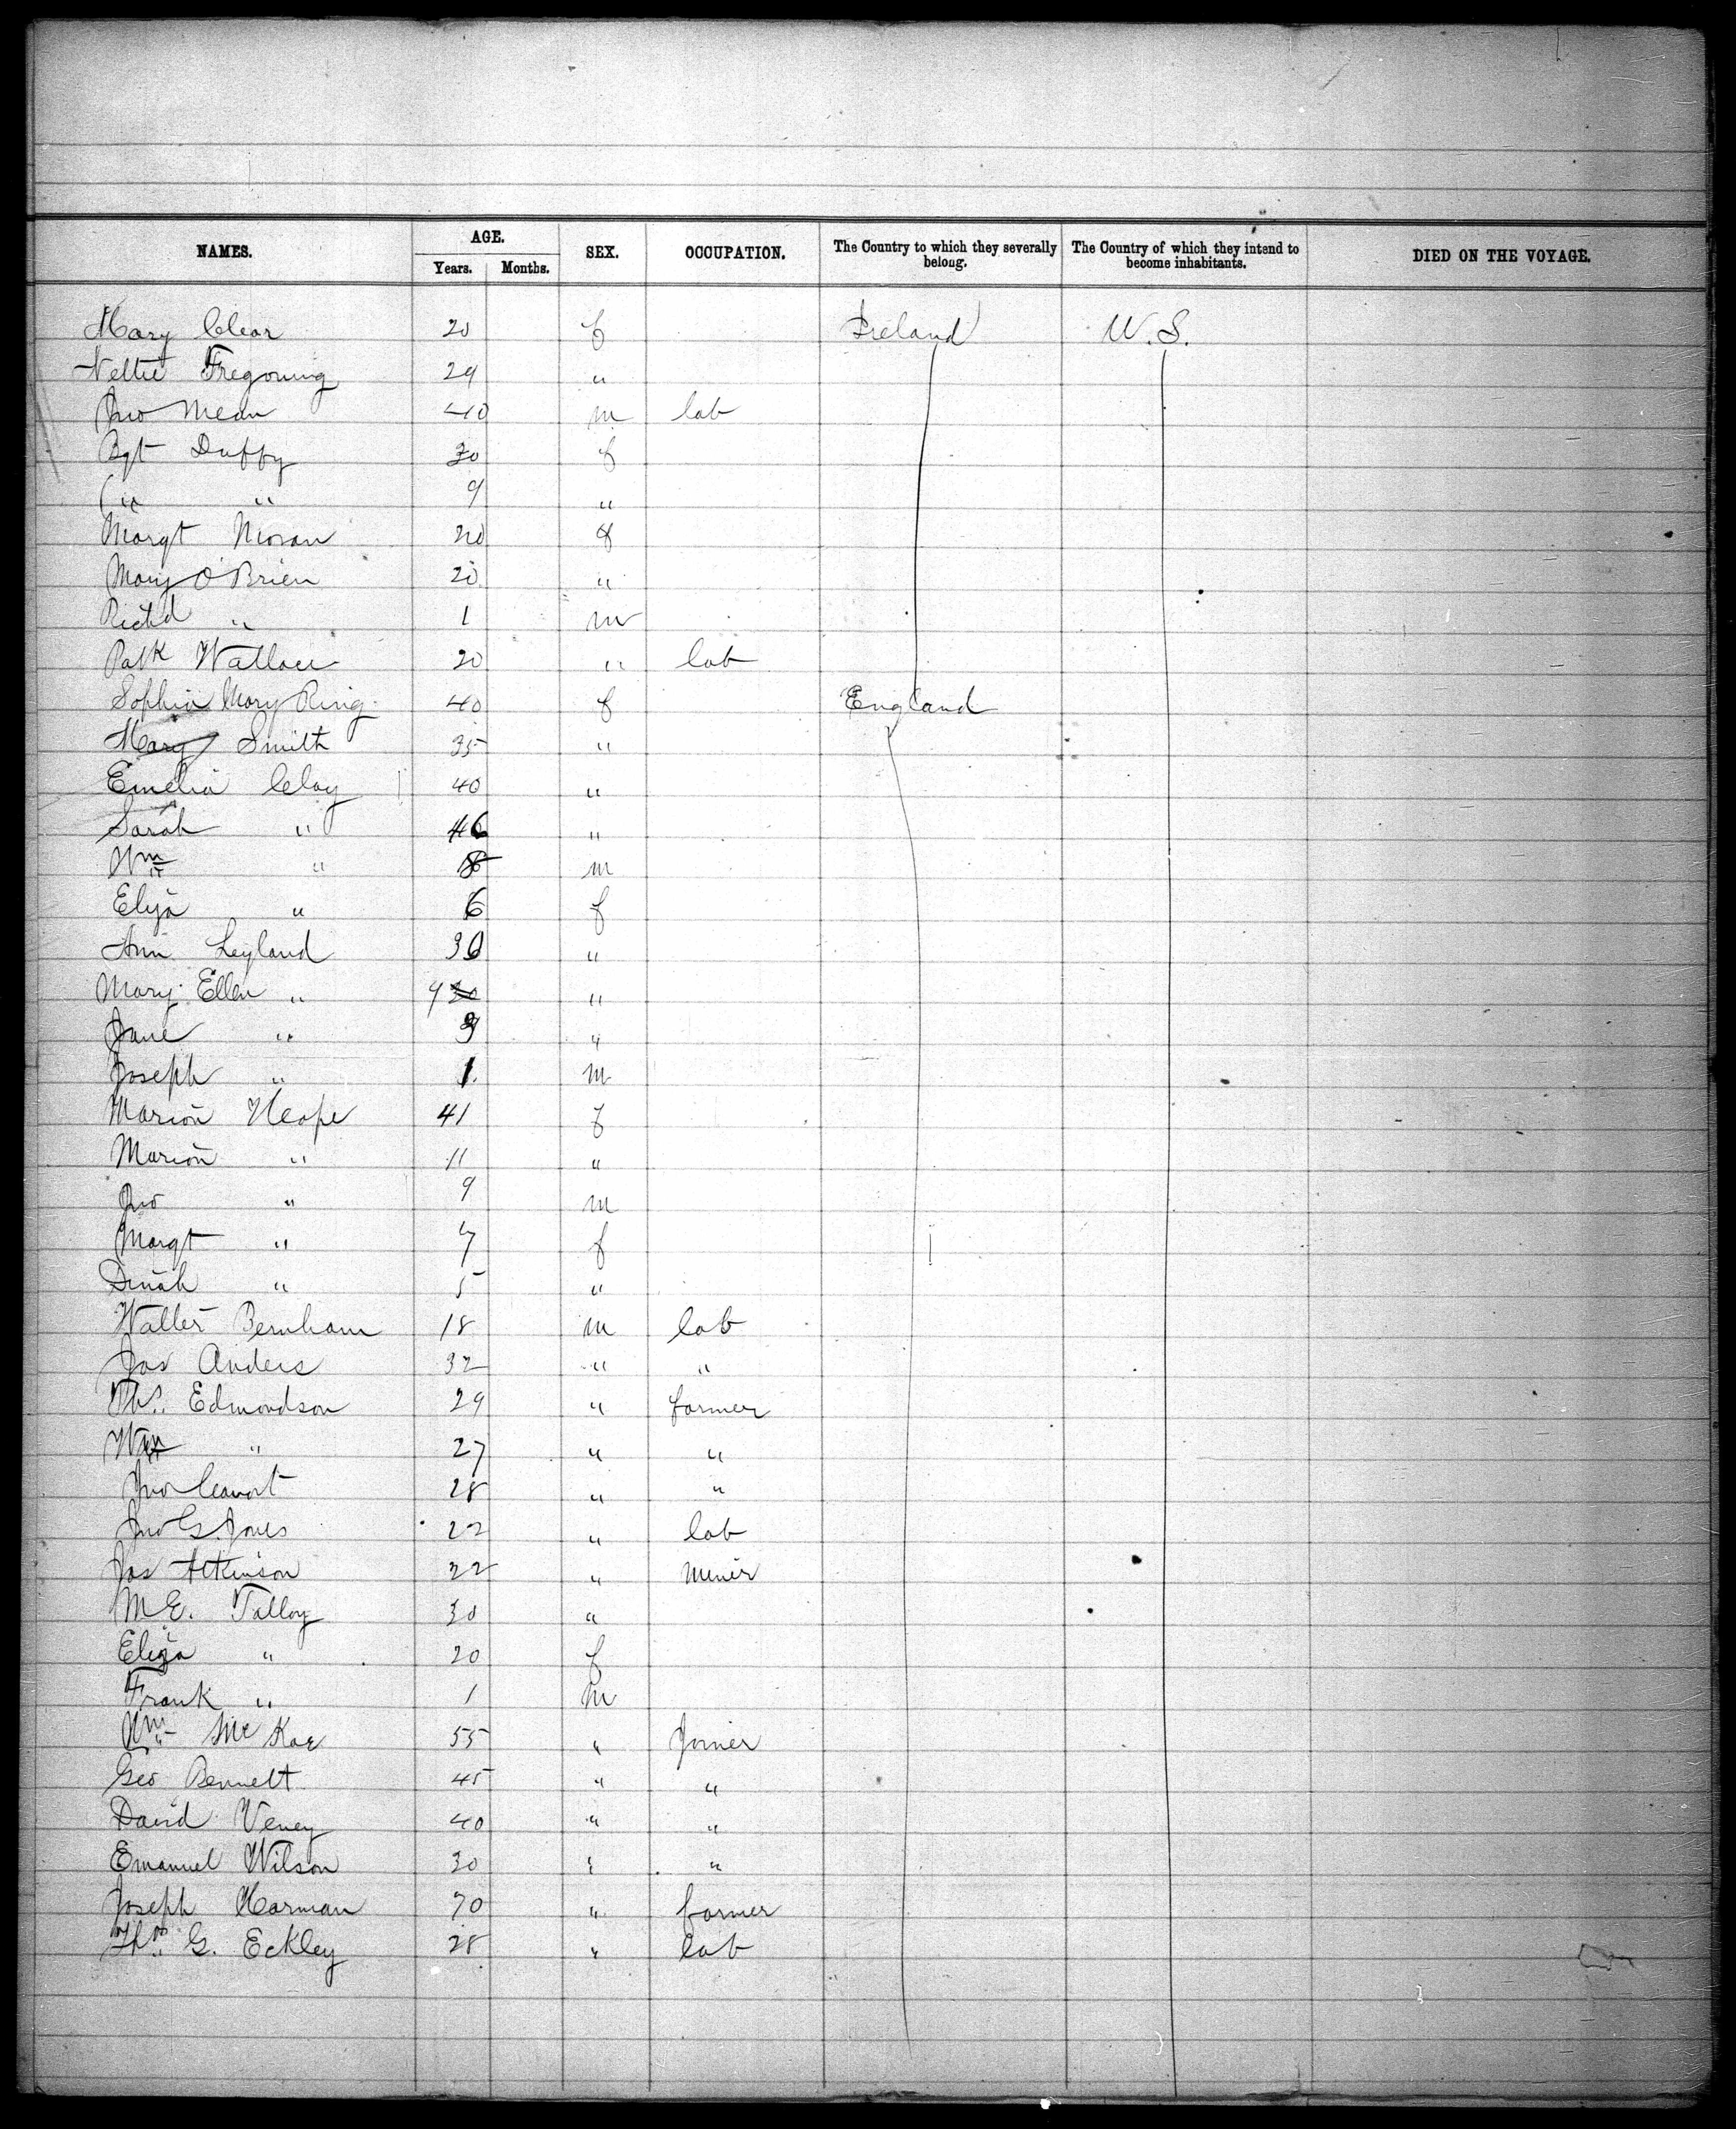 NAMES. AGE. SEX. OCCUPATION. The Country to which they severally belong. The Country of which they intend to become inhabitants. DIED ON THE VOYAGE.
Years. Months.
Mary Clear 20 f Ireland U.S.
Nettie Tregoning 29 "
Jno Mean 40 m lab
Bgt Duffy 30 f
" " 9 "
Margt Moran 20 f
Mary O'Brien 20 "
Richd " 1 m
Patk Wallace 20 " lab
Sophia Mary Ring 40 f England
Mary Smith 35 "
Emelia Clay 40 "
Sarah " "
Wm " 8 m
Eliza " 6 f
Ann Leyland 30 "
Mary Ellen " 9 "
Jane " "
Joseph " 1 m
Marion Heape 41 f
Marion " 11 "
Jno " 9 m
Margt " 7 f
Dinah " 5 "
Walter Bernham 18 m lab
Jas Anders 32 " "
Ths. Edmondson 29 " farmer
Wm " 27 " "
Jno 28 " "
Jno G. Jones 22 " lab
Jas Atkinson 22 " miner
M E. Talloy 30 "
Eliza " 20 f
Frank " 1 m
Wm McKae 55 " Joiner
Geo Bennett 45 " "
David Veney 40 " "
Emanuel Wilson 30 " "
Joseph Harman 70 " farmer
Thos G. Eckley 28 " lab